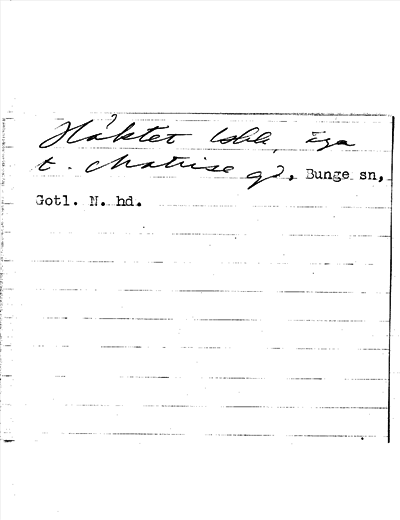 Håktet, äga
t. Matrise gd, Bunge sn,
Gotl. N. hd.